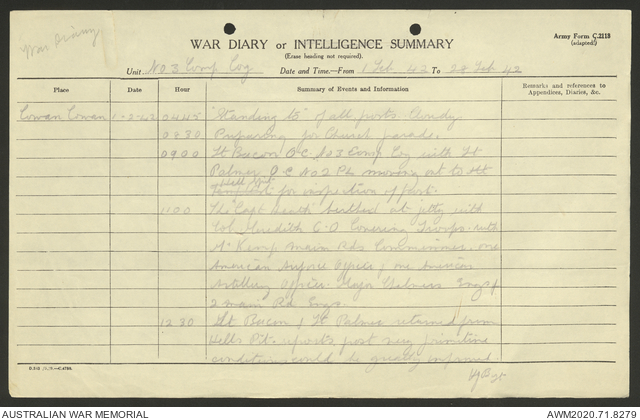 War Diary
Army Form C.2118
(adapted)
WAR DIARY or INTELLIGENCE SUMMARY
(Erase heading not required).
Unit No 3 Comp Coy Date and Time.—From 1 Feb 42 To 28 Feb 42
Place Date Hour Summary of Events and Information Remarks and references to Appendices, Diaries, &c.
Cowan Cowan 1-2-42 0445 "Standing to" of all posts.
0830 Preparing for Church parade.
0900 Lt Bacon O.C. No 3 Comp Coy with Lt
Palmer O.C No 2 Pl moving out to
Hell for inspection of post.
1100 The "Capt Heath" berthed at jetty with
Col Meredith C.O Covering Troops with
Mr Kemp Main Rds Commissioner, one
American Officer, one American
Artillery Officer. Major Engs &
2 Main Rd Engs.
12.30 Lt Bacon & Lt Palmer returned from
Hells reports post very primitive
conditions could be greatly improved.
AUSTRALIAN WAR MEMORIAL
AWM2020.71.8279